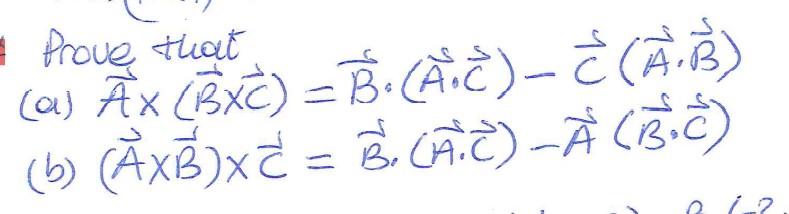 Prove that
(a) A⃗ × (B⃗×C⃗) = B⃗.(A⃗.C⃗) – C⃗ (A⃗.B⃗)
(b) (A⃗×B⃗)×C⃗ = B⃗.(A⃗.C⃗) – A⃗ (B⃗.C⃗)